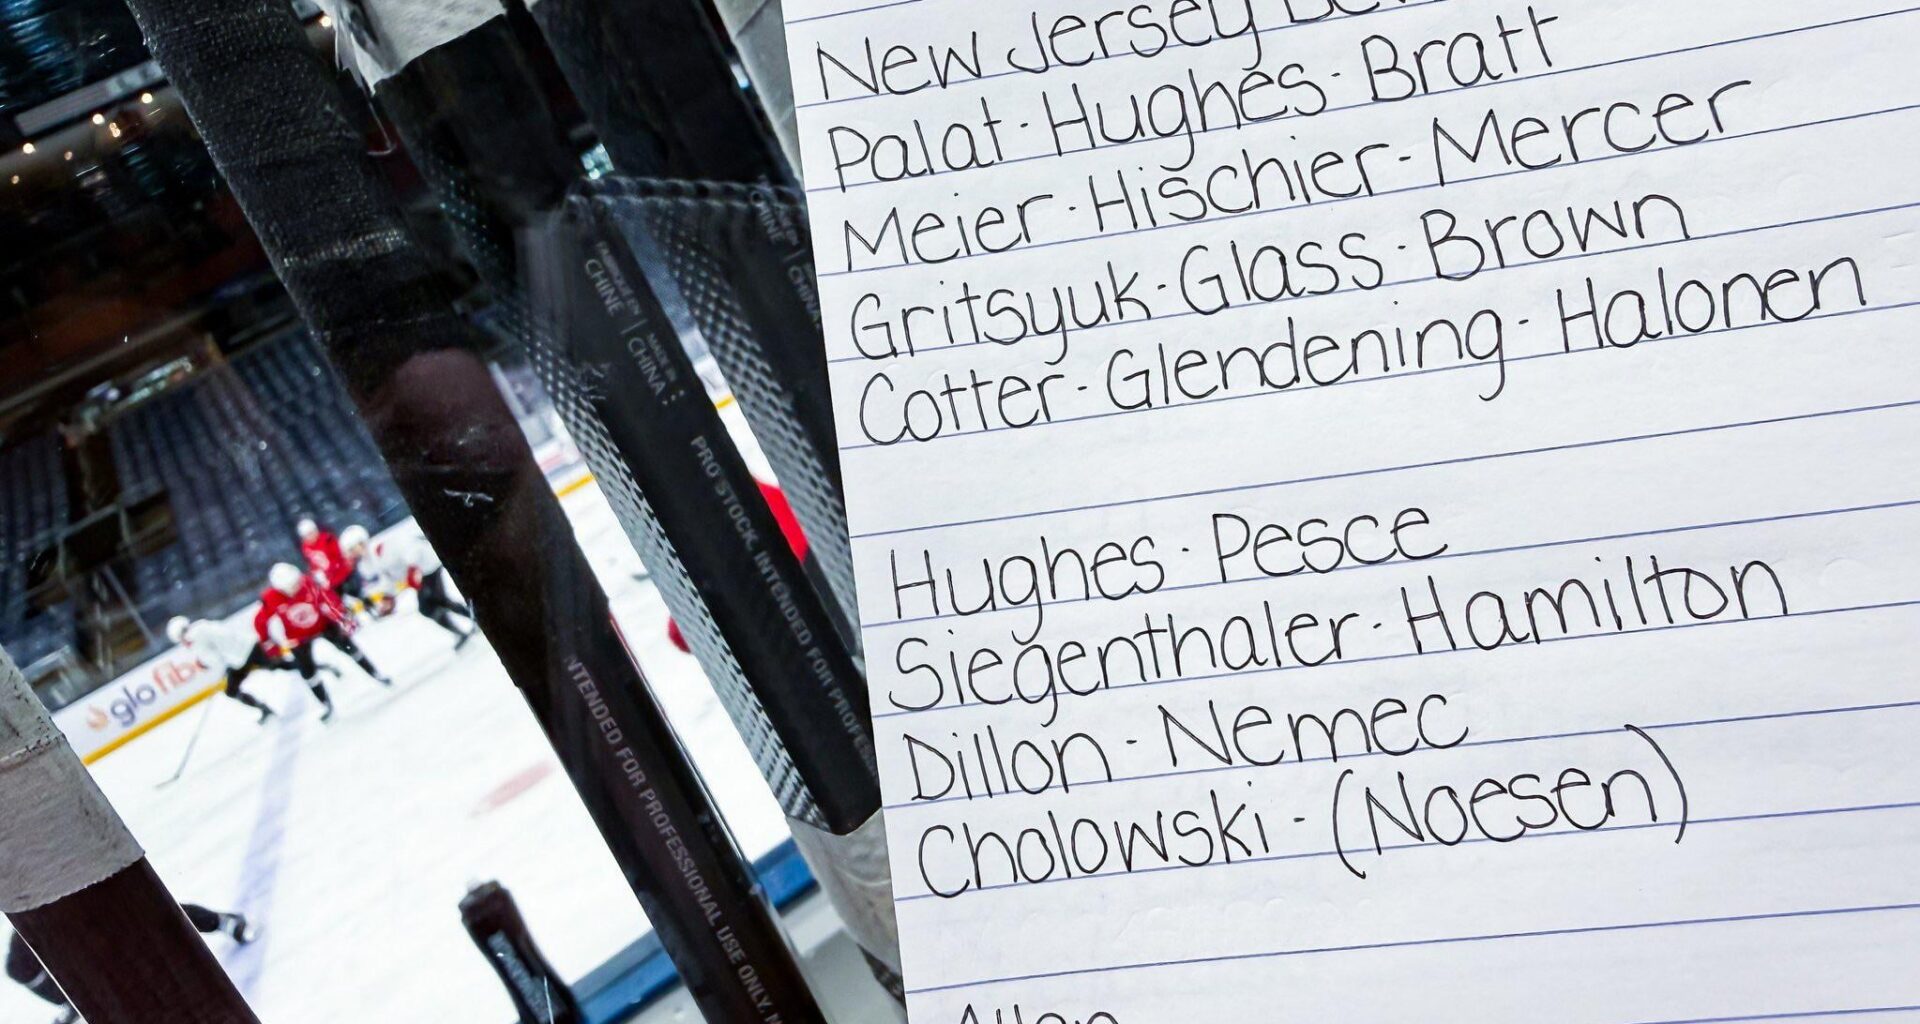 New Jersey
Palat · Hughes · Bratt
Meier · Hischier · Mercer
Gritsyuk · Glass · Brown
Cotter · Glendening · Halonen
Hughes · Pesce
Siegenthaler · Hamilton
Dillon · Nemec
Cholowski · (Noesen)
Allen
FABRIQUÉ EN CHINE | MADE IN CHINA
PRO STOCK. INTENDED FOR
INTENDED FOR PROFESSIONAL USE ONLY.
glo fibe
CHINE